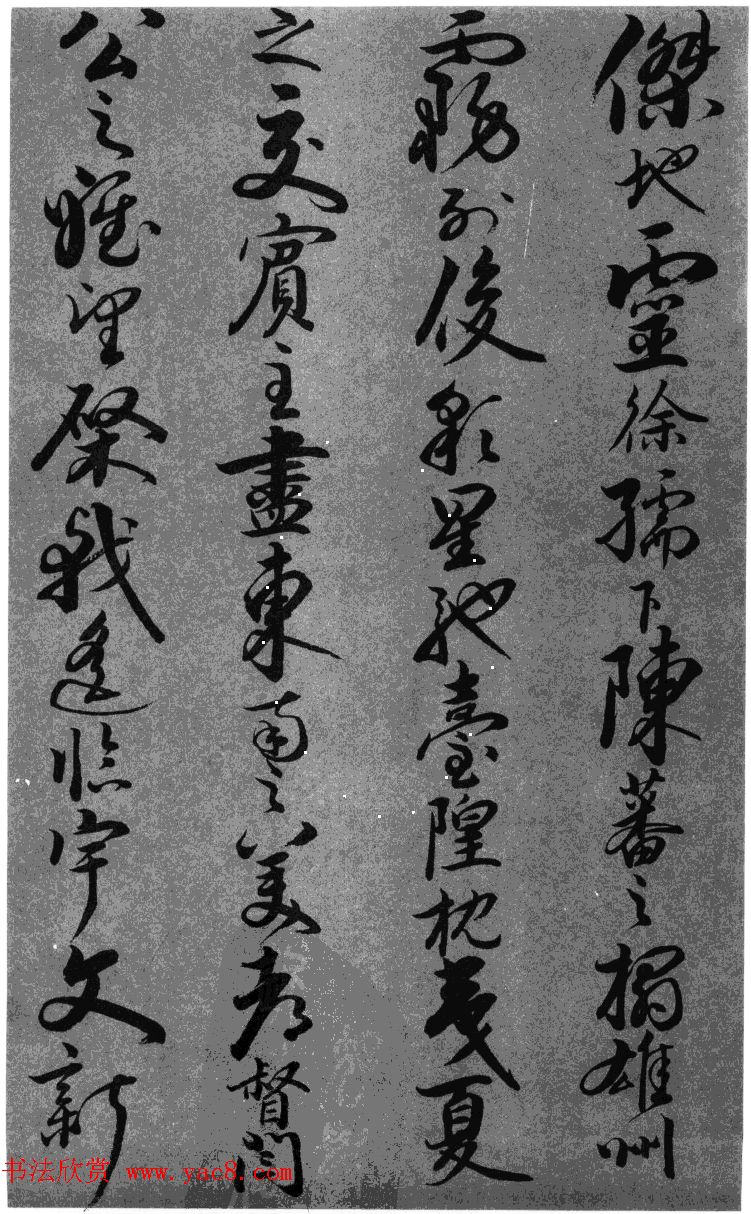 傑地靈徐孺下陳蕃之榻雄州
霧列俊彩星馳臺隍枕夷夏
之交賓主盡東南之美都督閻
公之雅望棨戟遙臨宇文新
书法欣赏 www.yac8.com